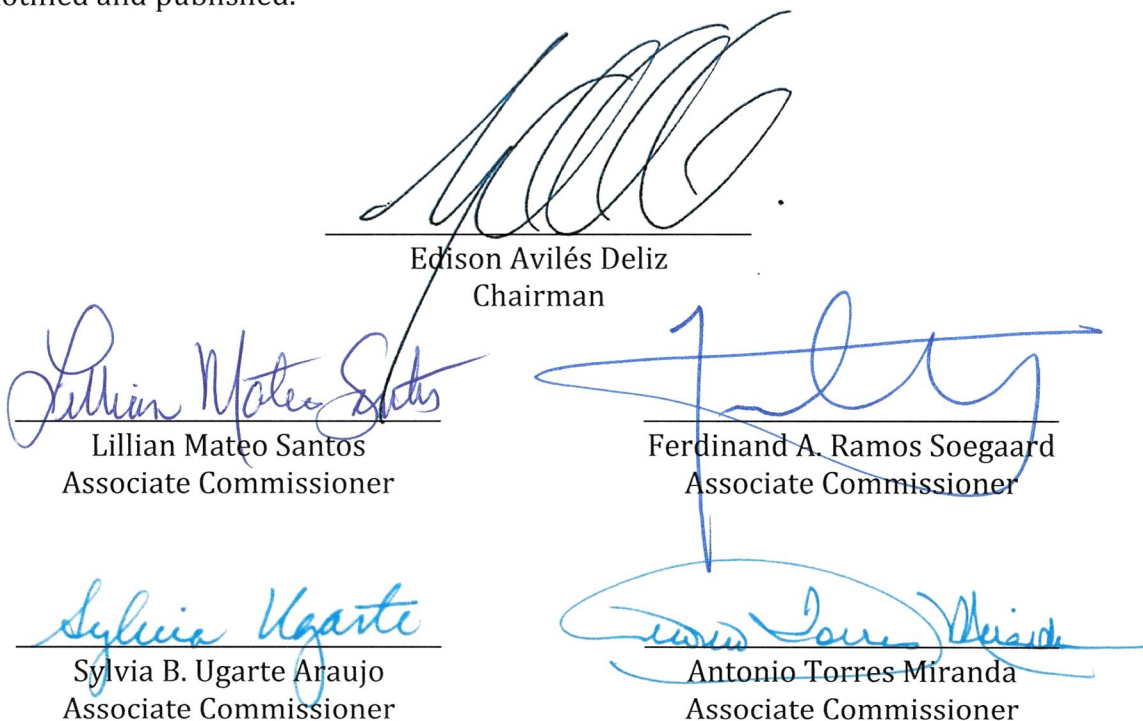 notified and published.
Edison Avilés Deliz
Chairman
Lillian Mateo Santos
Lillian Mateo Santos
Associate Commissioner
Ferdinand A. Ramos Soegaard
Associate Commissioner
Sylvia Ugarte
Sylvia B. Ugarte Araujo
Associate Commissioner
Antonio Torres Miranda
Antonio Torres Miranda
Associate Commissioner